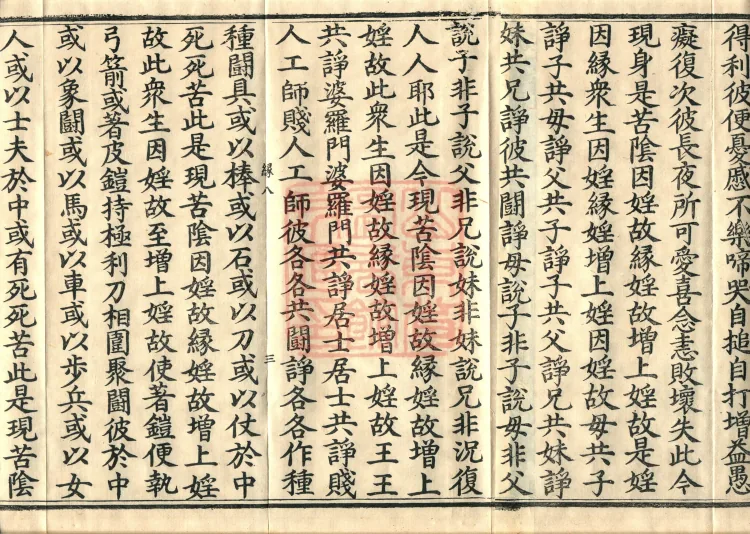 得利彼便憂慼不樂啼哭自搥自打增益愚
癡復次彼長夜所可愛喜念恚敗壞失此今
現身是苦陰因婬故緣婬故增上婬故是婬
因緣衆生因婬緣婬增上婬因婬故母共子
諍子共母諍父共子諍子共父諍兄共妹諍
妹共兄諍彼共鬪諍母說子非子說母非父
說子非子說父非兄說妹非妹說兄非況復
人人耶此是今現苦陰因婬故緣婬故增上
婬故此衆生因婬故緣婬故增上婬故王王
共諍婆羅門婆羅門共諍居士居士共諍賤
人工師賤人工師彼各各共鬪諍各各作種
緣八 三
種鬪具或以棒或以石或以刀或以仗於中
死死苦此是現苦陰因婬故緣婬故增上婬
故此衆生因婬故至增上婬故使著鎧便執
弓箭或著皮鎧持極利刀相圍聚鬪彼於中
或以象鬪或以馬或以車或以步兵或以女
人或以士夫於中或有死死苦此是現苦陰